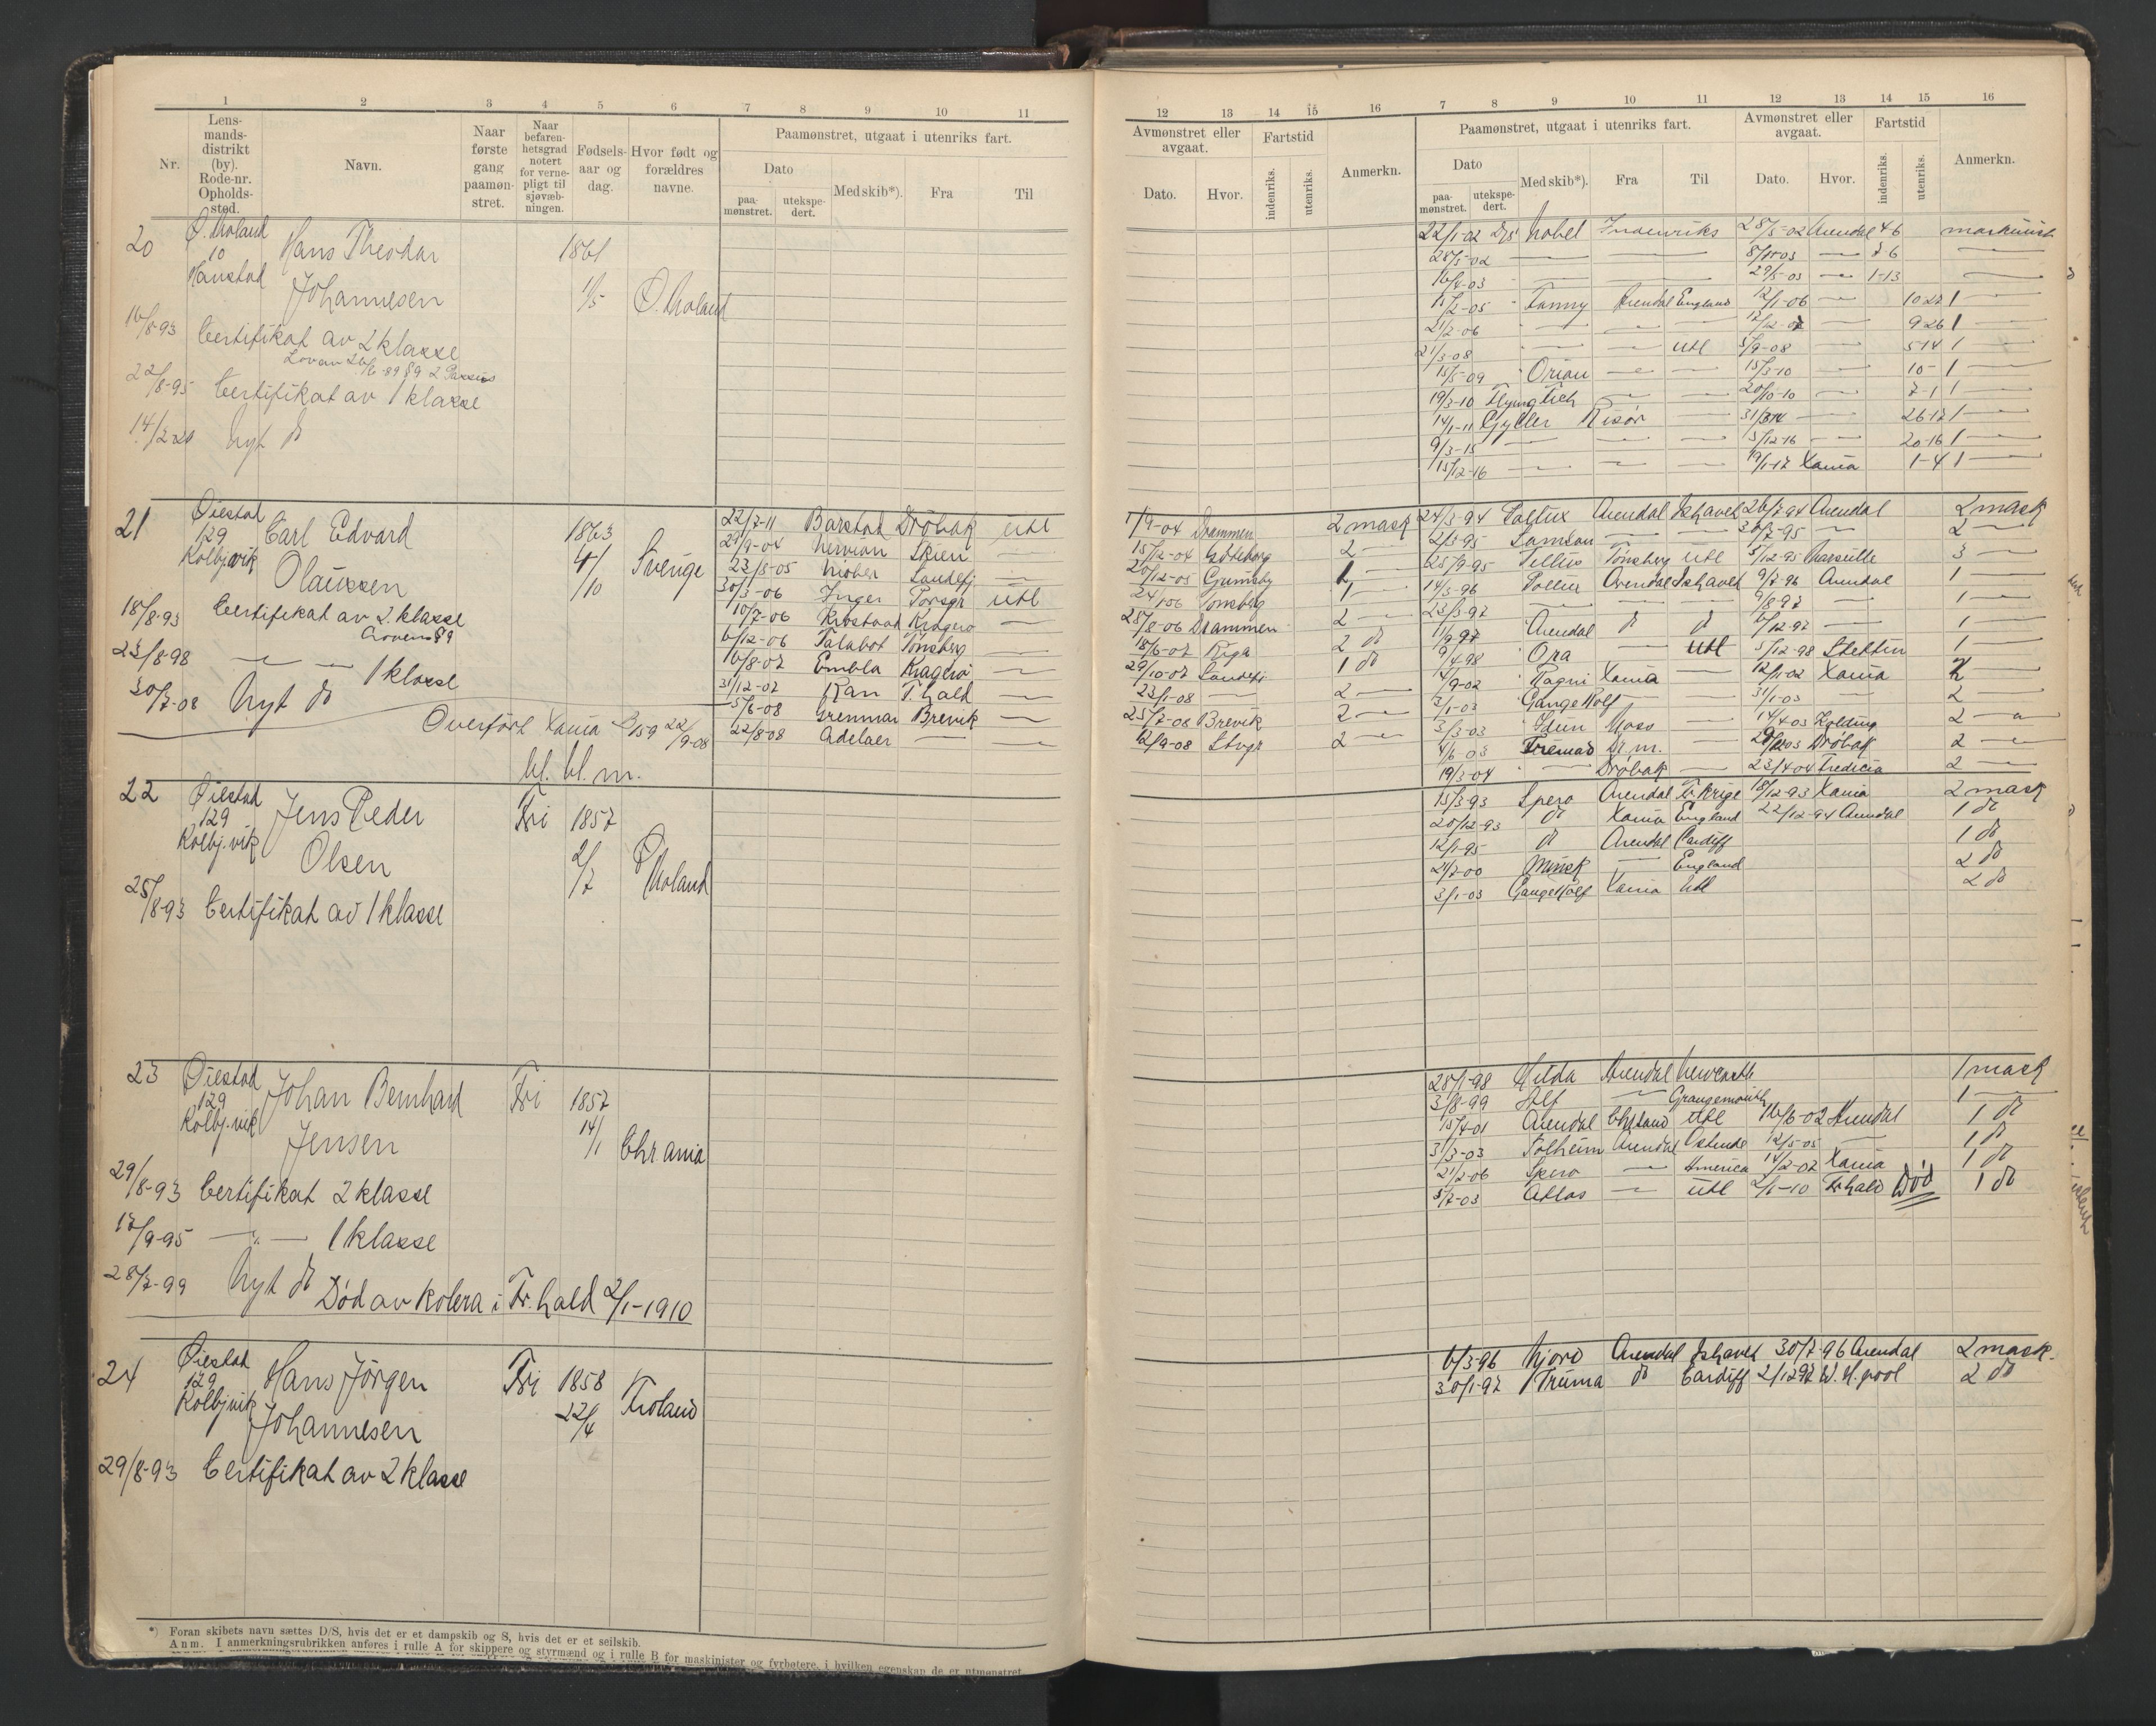 1 2 3 4 5 6 7 8 9 10 11
Nr.
Lens-
mands-
distrikt
(by).
Rode-nr.
Opholds-
sted.
Navn.
Naar
første
gang
paamøn-
stret.
Naar
befaren-
hetsgrad
notert
for verne-
pligt til
sjøvæb-
ningen.
Fødsels-
aar og
dag.
Hvor født og
forældres
navne.
Paamønstret, utgaat i utenriks fart.
Dato
paa-
mønstret.
utekspe-
dert.
Med skib*).
Fra
Til
20 Ø. Moland Hans Theodor 1861
10
Johannesen 1/5 Ø. Moland
16/8-93 Certifikat av 2 klasse
22/8-95 Certifikat av 1 klasse
14/2-20 Nyt do
21 Øiestad Carl Edvard 1863
129
Kolbj.vik Olaussen 4/10 Sverige
18/8-93 Certifikat av 2. klasse
23/8-98 — — 1 klasse
30/7-08 Nyt do
Overført Xania 22/9-08
22/7-11 Barstad Drøbak Utl
29/9-04 Skien —
23/5-05 Sandefj —
30/3-06 Inger Porsgr Utl
10/7-06 Kragerø —
6/12-06 Talabot Tønsberg —
16/8-07 Embla Kragerø —
31/12-07 Ran F hald —
5/6-08 Grenmar Brevik —
22/8-08 Adelaer — —
22 Øiestad Jens Peder Fri 1857
129
Kolbj.vik Olsen 2/7 Ø Moland
25/8-93 Certifikat av 1 klasse
23 Øiestad Johan Bernhard Fri 1857
129 14/1
Kolbj.vik Jensen Chrania
29/8-93 Certifikat 2 klasse
17/9-95 — " — 1 klasse
28/7-99 Nyt do
Død av kolera i Fr.hald 2/1-1910
24 Øiestad Hans Jörgen Fri 1858
129 22/4 Froland
Kolbjvik Johannesen
29/8-93 Certifikat av 2 klasse
*) Foran skibets navn sættes D/S, hvis det er et dampskib og S, hvis det er et seilskib.
Anm. I anmerkningsrubrikken anføres i rulle A for skippere og styrmænd og i rulle B for maskinister og fyrbøtere, i hvilken egenskap de er utmønstret
12 13 14 15 16 7 8 9 10 11 12 13 14 15 16
Avmønstret eller
avgaat.
Dato.
Hvor.
Fartstid
indenriks.
utenriks.
Anmerkn.
Paamønstret, utgaat i utenriks fart.
Dato
paa-
mønstret.
utekspe-
dert.
Med skib*).
Fra
Til
Avmønstret eller
avgaat.
Dato.
Hvor.
Fartstid
indenriks.
utenriks.
Anmerkn.
22/1-02 D/S Nobel Indenriks 28/3-02 Arendal 4 6 maskinist
15/2-05 Fanny Arendal England 12/1-06 — 10 27 1 —
21/2-06 — — — 9 26 1 —
21/3-08 — — Utl 5/9-08 — 5 14 1 —
15/5-09 Orion — — 15/3-10 — 10 - 1 —
19/3-10 — — 20/10-10 — 7-1 1 —
14/1-11 Gyller Risør — — 26-17 1 —
9/3-15 — — — 5/12-16 — 20-16 1 —
15/12-16 — — — 19/1-17 Xania 1-4 1 —
1/9-04 Drammen 2 mask
15/2-04 Göteborg 2 —
20/12-05 Grimsby 1 —
Tønsberg 1 —
28/8-06 Drammen 2 —
18/6-07 Riga 2 do
29/10-07 Sandefj 1 do
23/1-08 — 2 —
25/7-08 Brevik 2 —
12/9-08 Stvgr 2 —
24/3-94 Pollux Arendal Ishavet 26/7-94 Arendal 2 mask
2/3-95 Samson — — — 2 —
25/9-95 Tellus Tønsberg Utl 5/12-95 Marseille 3 —
14/3-96 Pollux Arendal Ishavet 9/7-96 Arendal 1 —
23/3-97 — — — 9/8-97 — 1 —
11/9-97 Arendal do do 6/12-97 — 1 —
9/4-98 Ora — Utl 5/12-98 Stettin 1 —
Ragni Xania — 12/11-02 Xania 2 —
2/1-03 Gange Rolf — — 31/1-03 — 2 —
3/3-03 Idun Moss — 14/4-03 Kolding 2 —
4/6 03 Dr.m. — Drøbak 2 —
19/3-04 — Drøbak — 23/4 04 Fredicia 2 —
15/3-93 Spero Arendal Fr.krige 18/12-93 Xania 2 mask
20/12-93 do Xania England 22/12-94 Arendal 1 do
12/1-95 do Arendal Cardiff 1 do
Minsk — England 2 do
2/1-03 Gange Rolf Xania Utl 2 do
28/1-98 Hilda Arendal Newcastle 1 mask
3/8-99 Alf — Grangemouth 1 —
15/4-01 Arendal Chrsand Utl 16/6-02 Arendal 1 do
3/3-03 Solheim Arendal Ostende 12/5-05 — 1 do
21/2-06 Spero — America 14/2-07 Xania 1 do
Atlas — Utl 2/1-10 Fr.hald Død 1 do
6/3-96 Njord Arendal Ishavet 30/7-96 Arendal 2 mask.
30/1-97 Truma do Cardiff W.H.pool 2 do